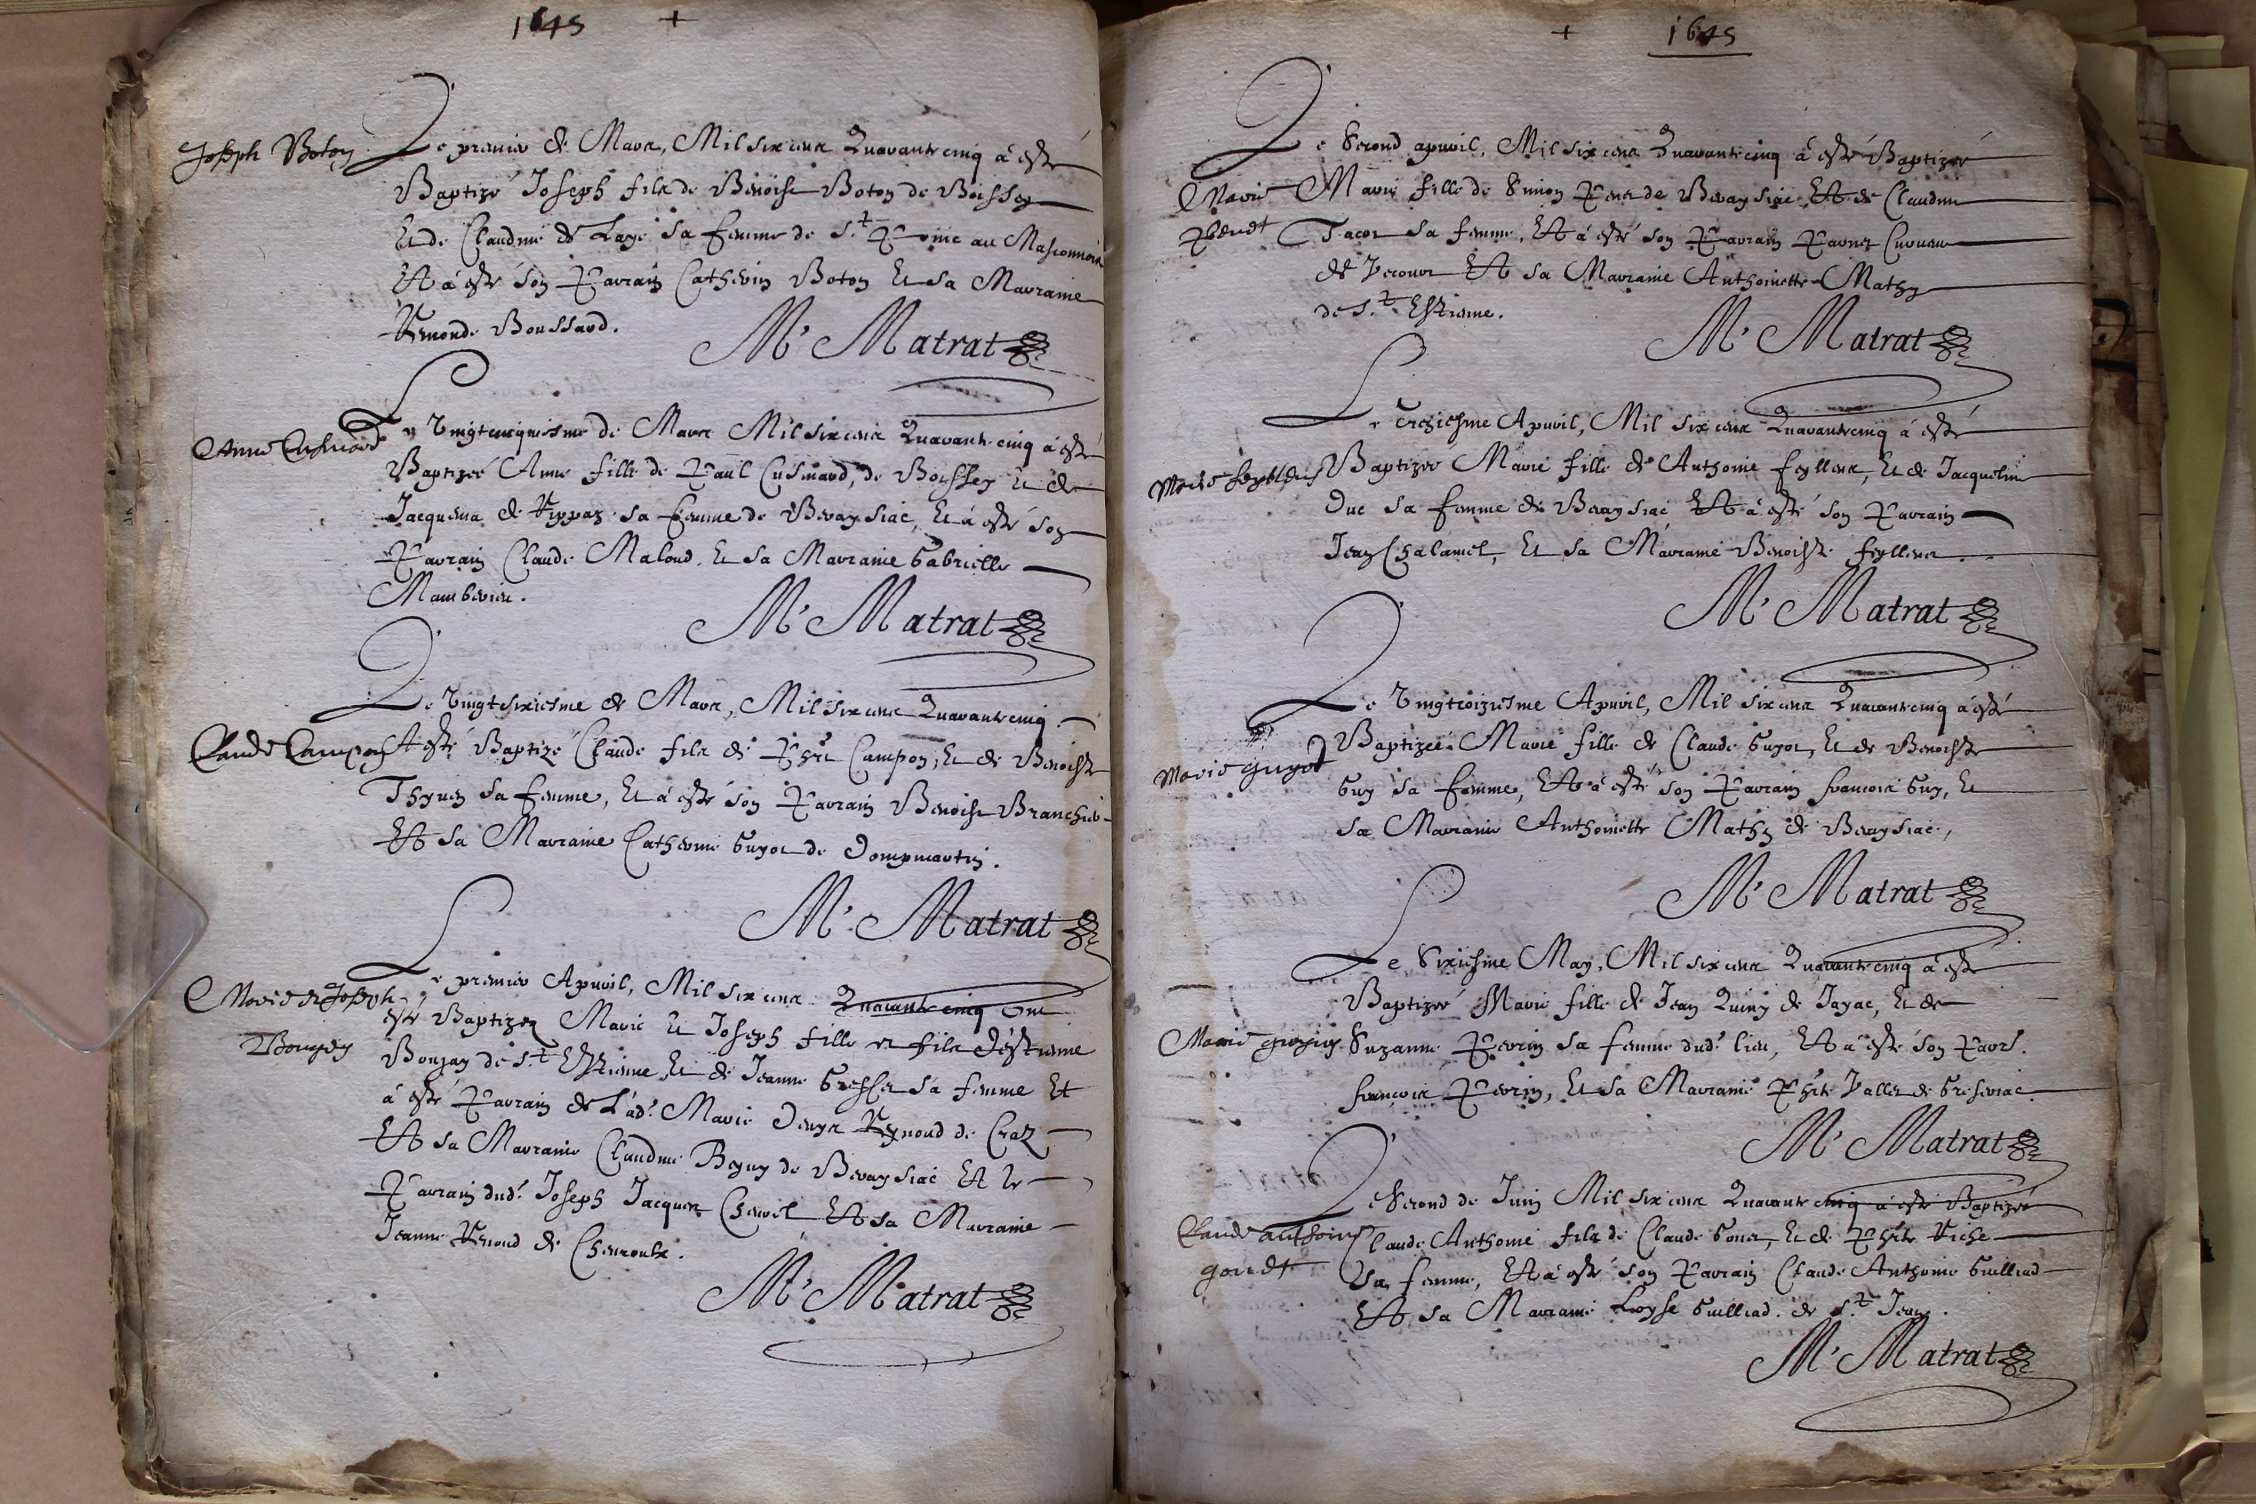 1645 +
Joseph Boton
Le premier de Mars, Mil six cens Quarante cinq à esté
Baptizé Joseph fils de Benoist Boton de Boissey
Et de Claudine de Laye sa femme de St. au Masconnois
Et à esté son Parrain Catherin Boton Et sa Marraine
Remonde Boussard.
M. Matrat
Anne Cusinard
Le Vingtcinquiesme de Mars Mil six cens Quarante cinq à esté
Baptizeé Anne fille de Paul Cusinard, de Boissey Et de
Jacquema de sa femme de Bereysiac, Et à esté son
Parrain Claude Maloud, Et sa Marraine Gabrielle
M. Matrat
Claude Campon
Le Vingtsixiesme de Mars, Mil six cens Quarante cinq
A esté Baptizé Claude fils de Phe Campon, Et de Benoiste
Thyven sa femme, Et à esté son Parrain Benoist Branchier
Et sa Marraine Catherine Guyot de Dompmartin.
M. Matrat
Marie et Joseph
Bonjan
Le premier Apvril, Mil six cens Quarante cinq Ont
esté Baptizez Marie Et Joseph fille et fils d'Estienne
Bonjan de St. Estienne, Et de Jeanne sa femme Et
à esté Parrain de Lad. Marie Denys Reynoud de Craz
Et sa Marraine Claudine Beguy de Bereysiac Et le
Parrain dud. Joseph Jacques Chevril Et sa Marraine
Jeanne Renoud de Chevroulx.
M. Matrat
+ 1645
Marie
Le Second apvril, Mil six cens Quarante cinq à esté Baptizeé
Marie fille de Simon de Bereysiac, Et de Claudine
Tacot sa femme, Et à esté son Parrain
de Et sa Marraine Anthoinette Mathy
de St. Estienne.
M. Matrat
Marie
Le Treziesme Apvril, Mil six cens Quarante cinq à esté
Baptizeé Marie fille de Anthoine Feyllens, Et de Jacqueline
Duc sa femme de Bereysiac Et à esté son Parrain
Jean Chalamel, Et sa Marraine Benoiste Feyllens.
M. Matrat
Marie guyot
Le Vingtroiziesme Apvril, Mil six cens Quarante cinq à esté
Baptizeé Marie fille de Claude Guyot, Et de Benoiste
Guy sa femme, Et à esté son Parrain Francois Guy, Et
sa Marraine Anthoinette Mathy de Bereysiac,
M. Matrat
Marie
Le Sixiesme May, Mil six cens Quarante cinq à esté
Baptizeé Marie fille de Jean Quiny de Jayac, Et de
Suzanne Perrin sa femme dud. lieu, Et à esté son Parr.
Francois Perrin, Et sa Marraine Phte Vallet de
M. Matrat
Claude anthoine
Le Second de Juin Mil six cens Quarante cinq à esté Baptizé
Claude Anthoine fils de Claude Gonet, Et de Phte Riche
sa femme, Et à esté son Parrain Claude Anthoine Guilliad
Et sa Marraine Loyse Guilliad. de St. Jean.
M. Matrat